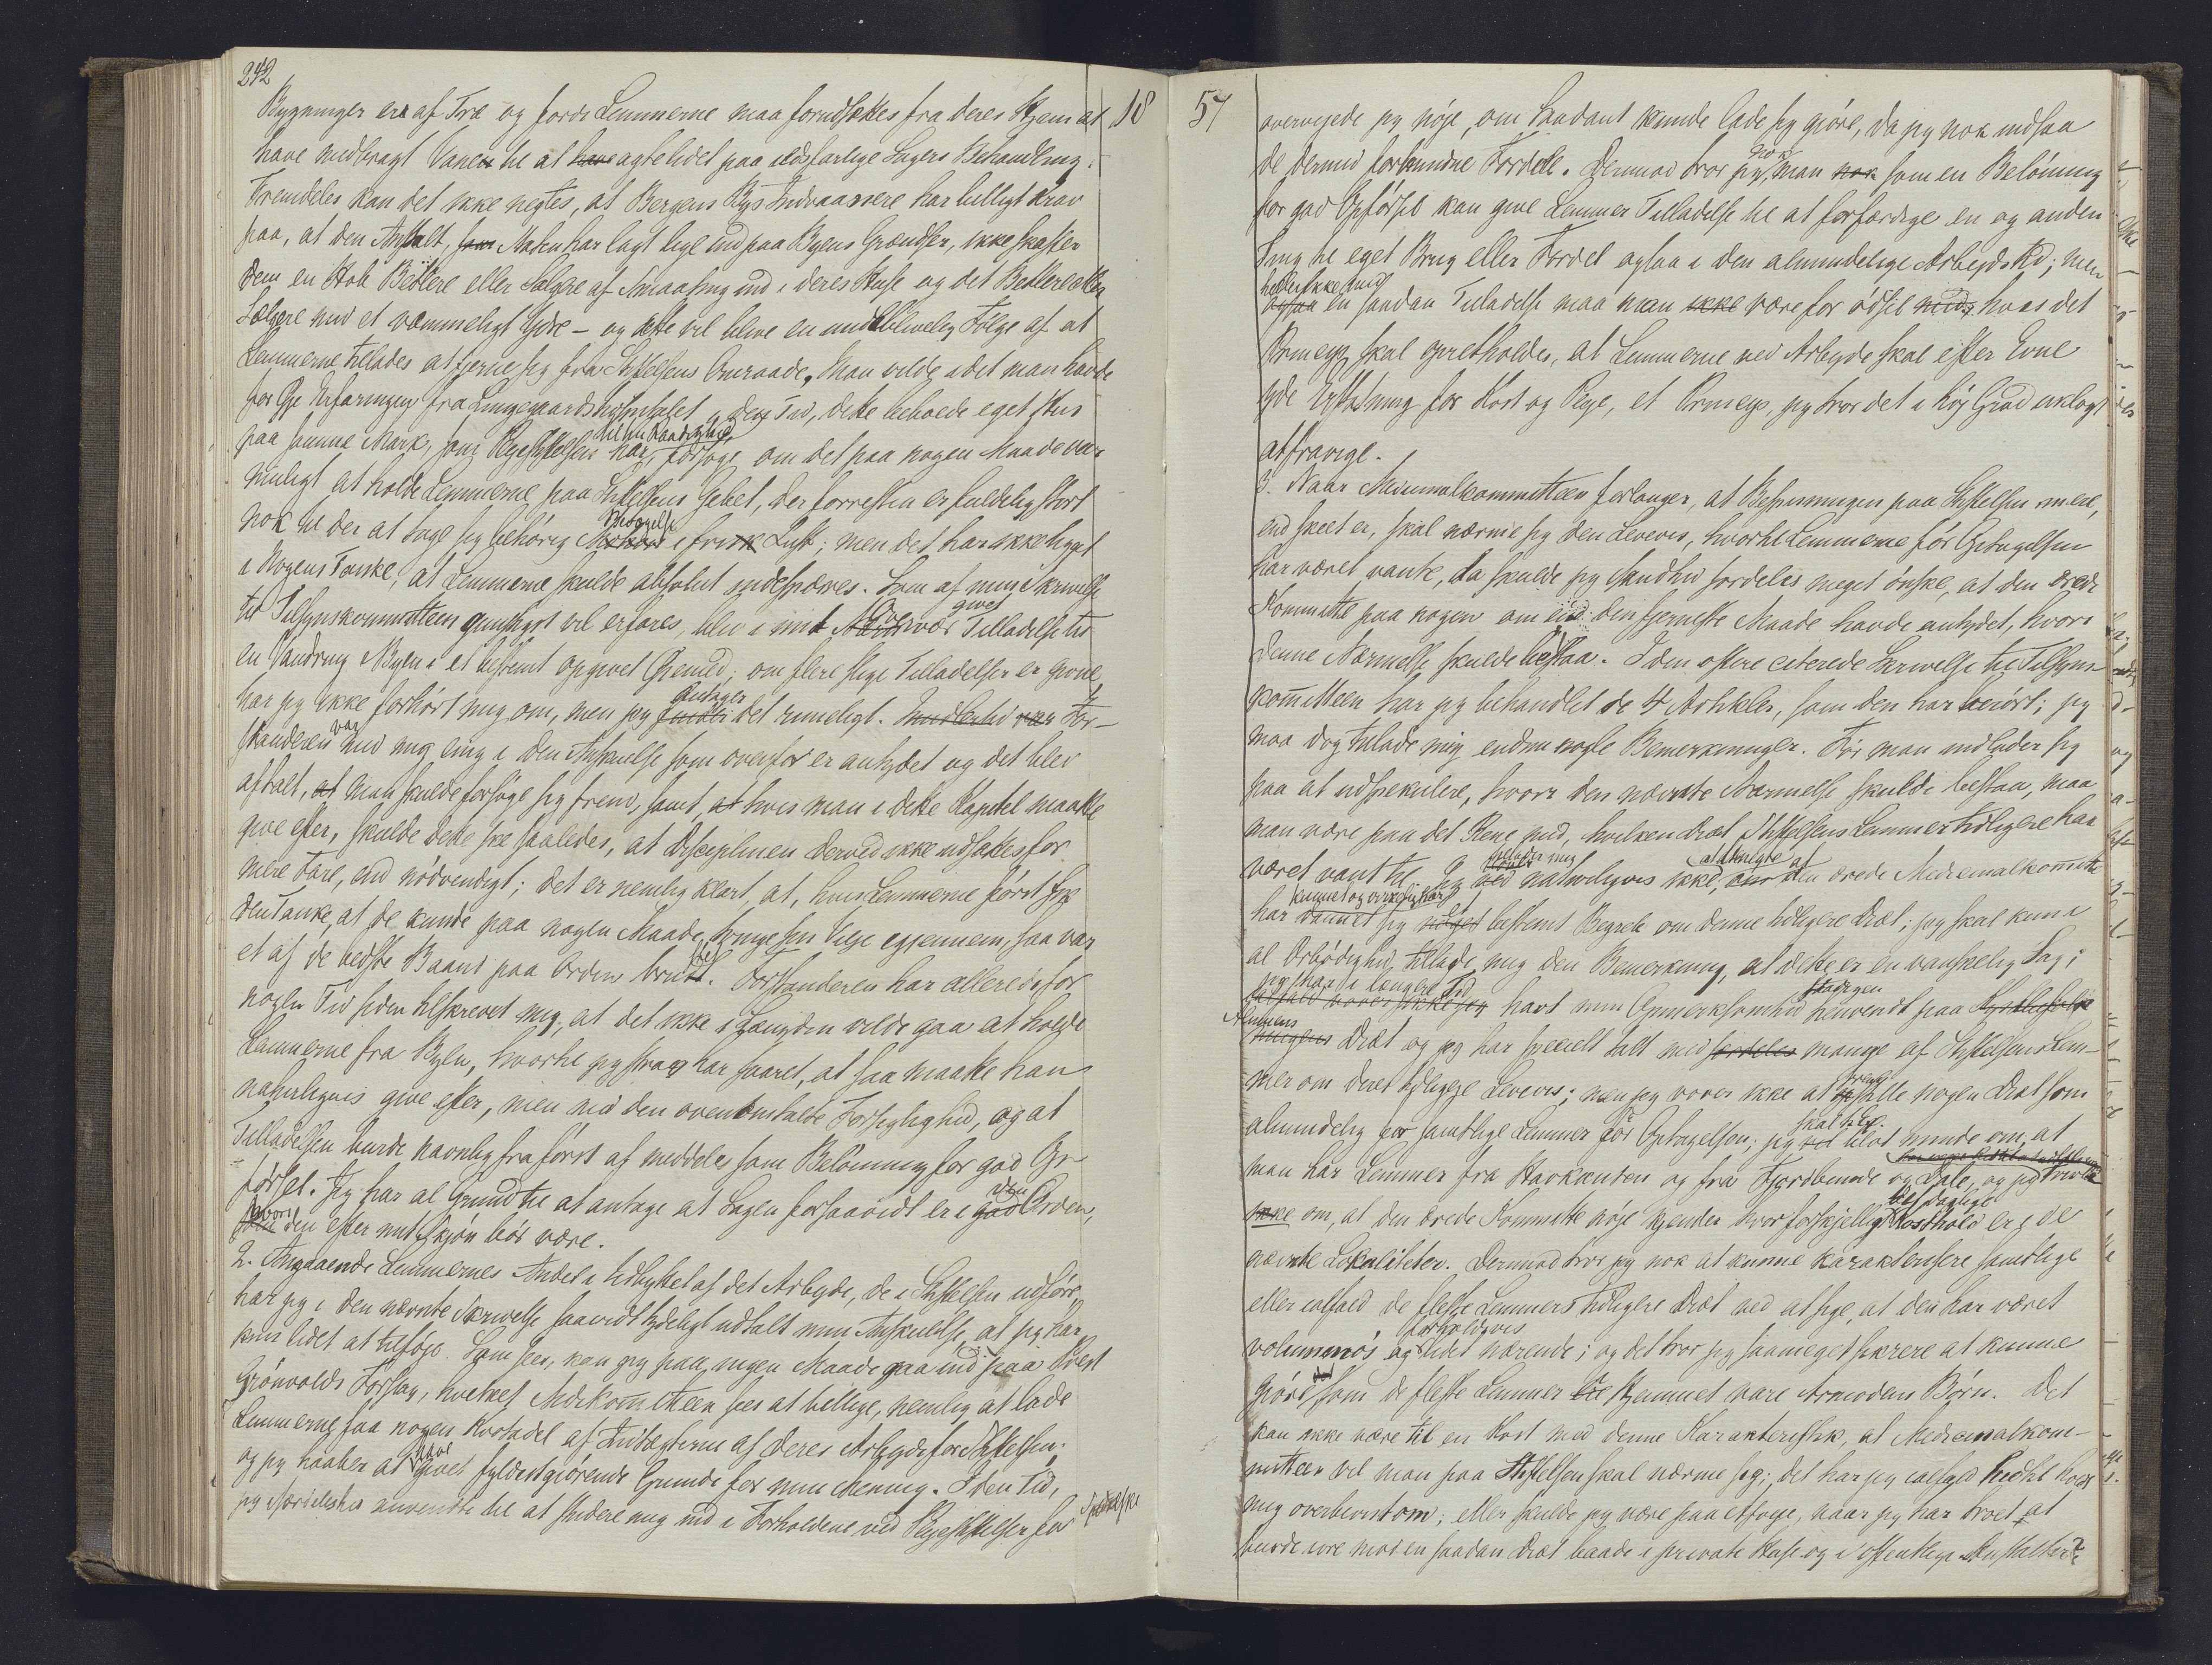 242
Bygninger er af Træ og fordi Lemmerne maa forudsættes fra deres Hjem at
have medbragt Vanen til at have agte lidet paa ildsfarlige Sagers Behandling.
Fremdeles kan det ikke negtes, at Bergens Bys Indvaanere har billigt Krav
paa, at den Anstalt, som Staten har lagt lige ind paa Byens Grændser, ikke skaffer
dem en Hob Betlere eller Sælgere af Smaating ind i deres Huse og det Betlere eller
Sælgere med et væmmeligt Ydre – og dette vil blive en uudeblivelig Følge af at
Lemmerne tillades at fjerne sig fra Stiftelsens Omraade. Man vilde, idet man havde
for Øje Erfaringen fra Lungegaardshospitalet i den Tid, dette beboede eget Hus
paa samme Mark, som Plejestiftelsen har til sin Raadighed,
forsøge, om det paa nogen Maade var
muligt at holde Lemmerne paa Stiftelsens Gebet, der forresten er fuldelig stort
nok til der at tage sig behørig Motion Bevægelse i frisk Luft; men det har ikke ligget
i Nogens Tanke, at Lemmerne skulde absolut indespærres. Som af min Skrivelse
til Tilsynskommitteen gunstigst vil erfares, blev i mit Nærvær givet Tilladelse til
en Vandring i Byen i et bestemt opgivet Ærend; om flere slige Tilladelser er givne,
har jeg ikke forhørt mig om, men jeg finder antager det rimeligt. Imidlertid var For-
standeren var med mig enig i den Anskuelse som ovenfor er antydet og det blev
aftalt, at man skulde forsøge sig frem, samt, at hvis man i dette Kapitel maatte
give efter, skulde dette ske saaledes, at Disciplinen derved ikke udsattes for
mere Fare, end nødvendigt; det er nemlig klart, at, hvis Lemmerne først fik
den Tanke, at de kunde paa nogen Maade tvinge sin Vilje egjennem, saa var
et af de bedste Baand paa Orden brudt. Forstanderen har allerede for
nogen Tid siden tilskrevet mig, at det ikke i Længden vilde gaa at holde
Lemmerne fra Byen, hvortil jeg strax har svaret, at saa maatte han
naturligvis give efter, men med den ovenomtalte Forsigtighed, og at
Tilladelsen burde navnlig fra først af meddeles som Belønning for god Op-
førsel. Jeg har al Grund til at antage at Sagen forsaavidt er i god den Orden,
som hvori den efter mit Skjøn bør være.
2. Angaaende Lemmernes Andel i Udbyttet af det Arbejde, de i Stiftelsen udføre,
har jeg i den nævnte Skrivelse saavidt tydeligt udtalt min Anskuelse, at jeg har
kun lidet at tilføje. Som sees, kan jeg paa ingen Maade gaa ind paa Præst
Grønvolds Forslag, hvilket Medkomitteen sees at billige, nemlig at lade
Lemmerne faa nogen Kvotadel af Indtægterne af deres Arbejde for Stiftelsen;
og jeg haaber at have givet fyldestgjørende Grunde for min Mening. I den Tid,
jeg særdeleshed anvendte til at studere mig ind i Forholdene ved Plejestiftelsen for Spedalske
18
57
overvejede jeg nøje, om Saadant kunde lade sig gjøre, da jeg nok indsaa
de dermed forbundne Fordele. Derimod tror jeg, nok man nok som en Belønning
for god Opførsel kan give Lemmer Tilladelse til at forfærdige en og anden
Ting til eget Brug eller Fordel ogsaa i den almindelige Arbejdstid; men
heller ikke med
ogsaa en saadan Tilladelse maa man ikke være for ødsel med, hvis det
Princip skal opretholdes, at Lemmerne ved Arbejde skal efter Evne
yde Erstatning for Kost og Pleje, et Princip, jeg tror det i høj Grad uklogt
at fravige.
3. Naar Medicinalkommitteen forlanger, at Bespisningen paa Stiftelsen mere,
end skeet er, skal nærme sig den Levevis, hvortil Lemmerne før Optagelsen
har været vante, da skulde jeg særdeles meget ønske, at den ærede
Kommitte paa nogen om end den fjerneste Maade havde antydet, hvori
denne Nærmelse skulde bestaa. I den oftere citerede Skrivelse til Tilsyns-
komitteen har jeg behandlet de 4 Artikler, som den har berørt; jeg
maa dog tillade mig endnu nogle Bemerkninger. Før man indlader sig
paa at udspekulere, hvori den nævnte Nærmelse skulde bestaa, maa
man være paa det Rene med, hvilken Diæt Stiftelsens Lemmer tidligere har
været vant til. Jeg tillader mig naturligvis ikke, at benegte at den ærede Medicinalkomitte
har dannet sig noget bestemt Begreb om denne tidligere Diæt; jeg skal kun i
al Ærbødighed tillade mig den Bemerkning, at dette er en vanskelig Sag;
jeg har i længere Tid
havt min Opmerksomhed henvendt paa
Almuens
Diæt og jeg har specielt talt med særdeles mange af Stiftelsens Lem-
mer om deres tidligere Levevis; men jeg vover ikke at opstille nogen Diæt som
almindelig for samtlige Lemmer før Optagelsen; jeg skal blot minde om, at
man har Lemmer fra Havkanten og fra Fjordbunde og Dale, og jeg tvivler
ikke om, at den ærede Kommitte nøje kjender hvor forskjelligt det daglige Kosthold er i de
nævnte Lokaliteter. Derimod tror jeg nok at kunne karakterisere samtlige
eller ialfald de fleste Lemmers tidligere Diæt ved at sige, at den har været
voluminøs og forholdsvis lidet nærende; og det tror jeg saameget sikrere at kunne
gjøre, som de fleste Lemmer fra Hjemmet vare Armodens Børn. Det
kan ikke være til en Kost med denne Karakteristik, at Medicinalkom-
mitteen vil man paa Stiftelsen skal nærme sig; det har jeg ialfald hidtil holdt
mig overbevist om; eller skulde jeg være paa Afveje, naar jeg har troet at
burde ivre mod en saadan Diæt baade i private Huse og i offentlige Anstalter?